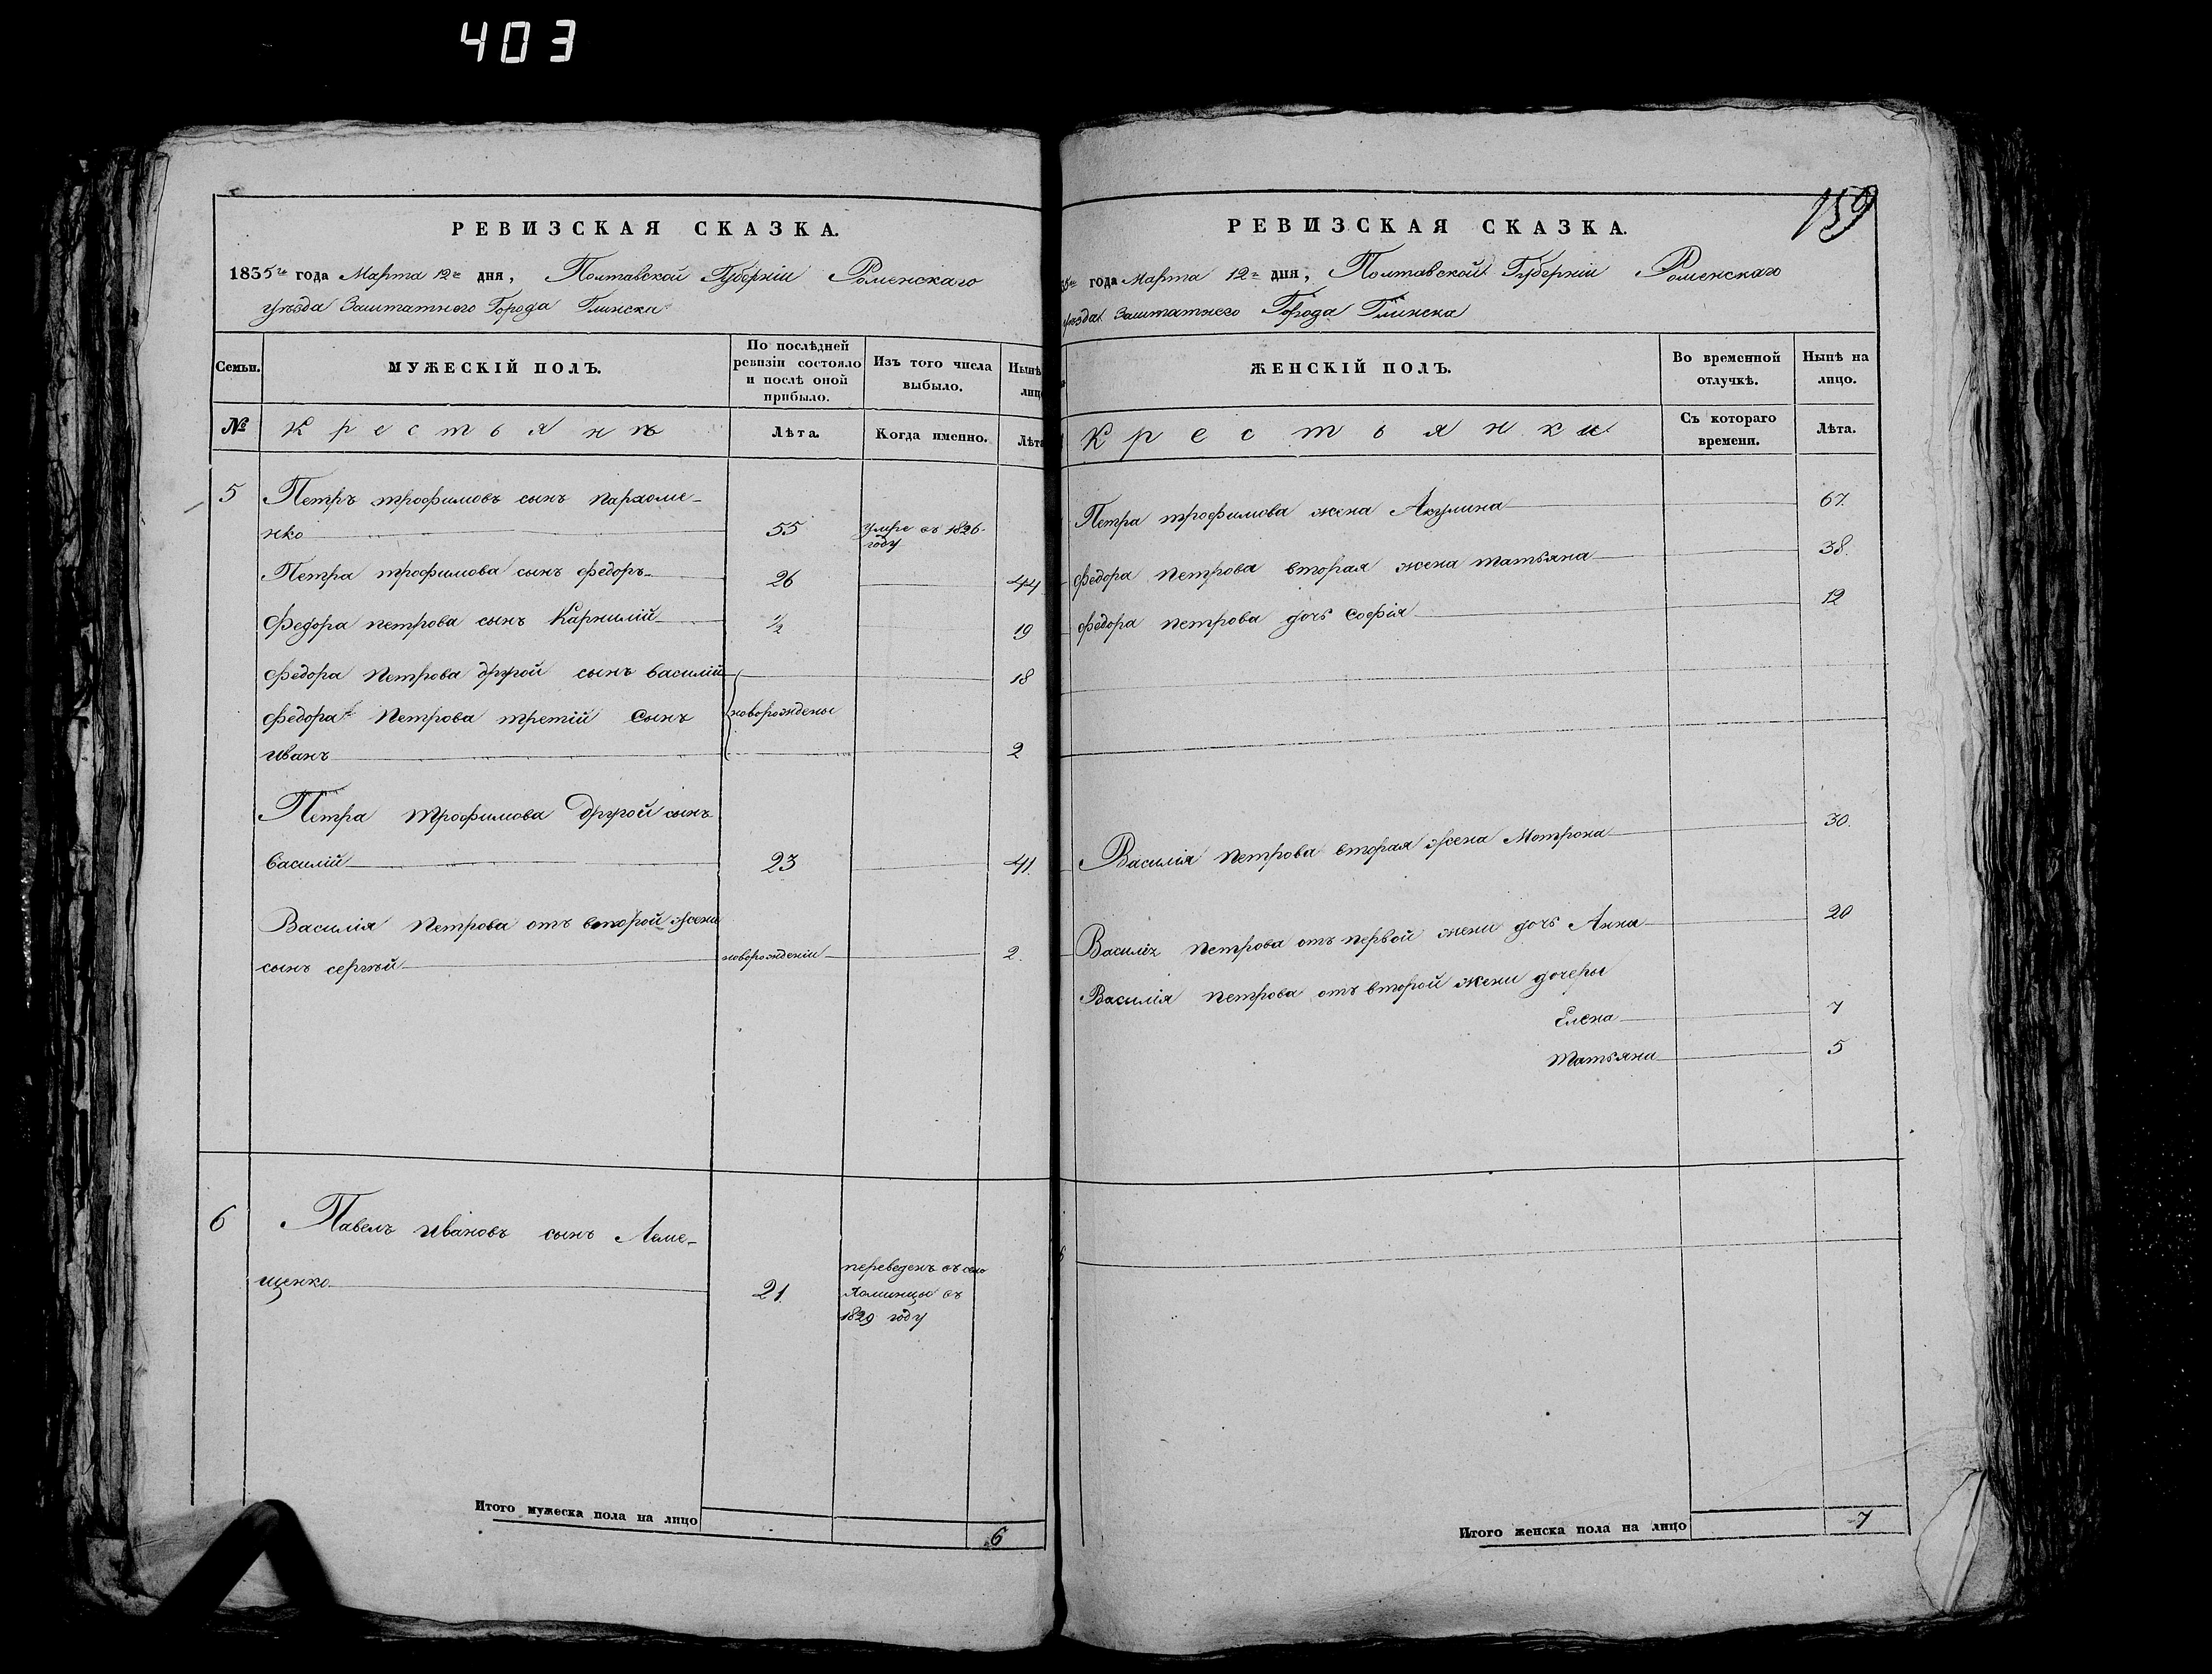 403
РЕВИЗСКАЯ СКАЗКА.
1835го года Марта 12го дня, Полтавской Губерніи Роменскаго
уѣзда Заштатного Города Глинска
Семьи.
МУЖЕСКІЙ ПОЛЪ.
По послѣдней
ревизіи состояло
и послѣ оной
прибыло.
Изъ того числа
выбыло.
Нынѣ
лицо
№
Крестьянѣ
Лѣта.
Когда именно.
Лѣта
5
Петръ трофимовъ сынъ пархоме-
нко 55 умре въ 1826-
году
Петра трофимова сынъ федоръ 26 44
Федора петрова сынъ Карнилій ½ 19
федора Петрова другой сынъ василій 18
федора Петрова третій сынъ новорождены
иванъ 2
Петра трофимова другой сынъ
василій 23 41
Василія Петрова отъ второй жени
сынъ сергѣй новорожденіи 2
6
Павелъ ивановъ сынъ Леме-
щенко 21 переведенъ въ село
Хоминцы въ
1829 году
Итого мужеска пола на лицо 6
159
РЕВИЗСКАЯ СКАЗКА.
35го года Марта 12го дня, Полтавской Губерніи Роменскаго
уѣзда Заштатнего Города Глинска
ЖЕНСКІЙ ПОЛЪ.
Во временной
отлучкѣ.
Нынѣ на
лицо.
Крестьянки
Съ котораго
времени.
Лѣта.
Петра трофимова жена Акулина 67.
федора петрова вторая жена татьяна 38.
федора петрова дочь софія 12
Василія петрова вторая жена Мотрона 30.
Василія петрова отъ первой жени дочь Анна 20
Василія петрова отъ второй жени дочеры
Елена 7
татьяна 5
6
Итого женска пола на лицо 7